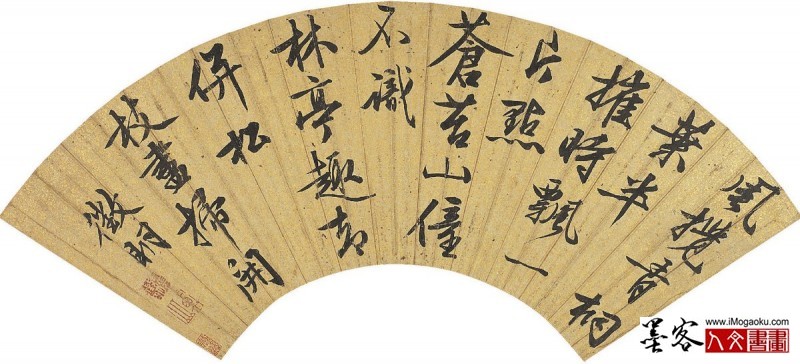 風攪青桐
葉半
摧時飄一
片點
蒼苔山僮
不識
林亭趣却
併松
枝盡掃開
徵明
墨客
www.iMogaoku.com
人文書畫